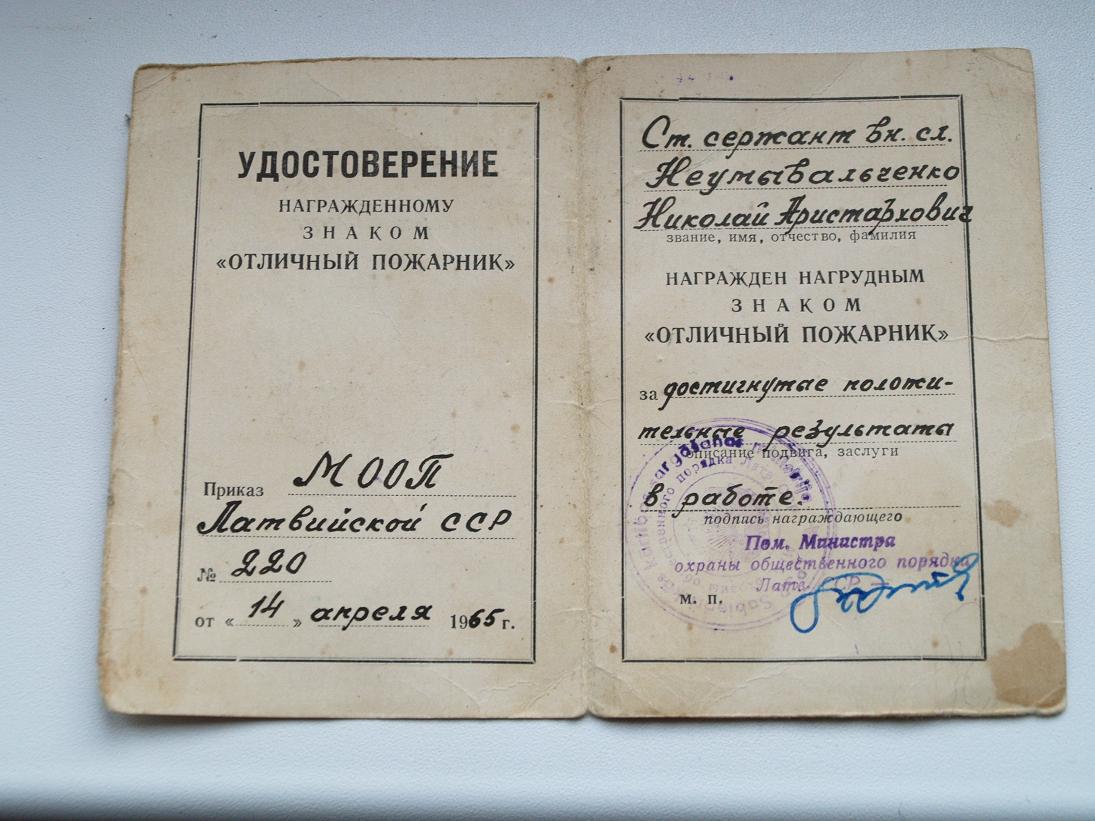 УДОСТОВЕРЕНИЕ
НАГРАЖДЕННОМУ
ЗНАКОМ
«ОТЛИЧНЫЙ ПОЖАРНИК»
Приказ МООП
Латвийской ССР
№ 220
от « 14 » апреля 1965 г.
Ст. сержант вн. сл.
Неумывальченко
Николай Аристархович
звание, имя, отчество, фамилия
НАГРАЖДЕН НАГРУДНЫМ
ЗНАКОМ
«ОТЛИЧНЫЙ ПОЖАРНИК»
за достигнутые положи-
тельные результаты
описание подвига, заслуги
в работе.
подпись награждающего
Пом. Министра
охраны общественного порядка
Латв.
м. п.